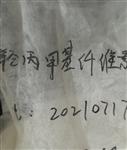 羟丙甲基纤维素
: 20210717